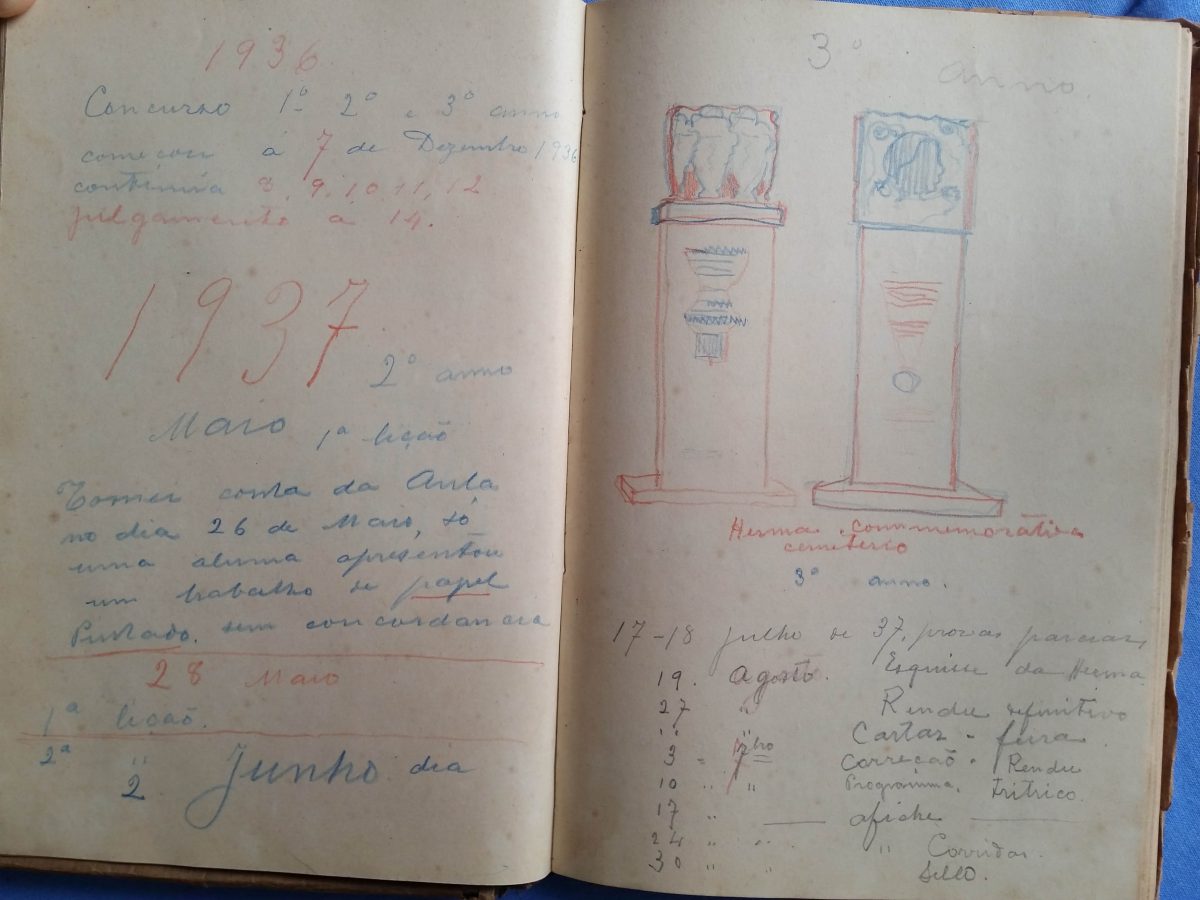 1936
Concurso 1º 2º e 3º anno
começou á 7 de Dezembro 1936
continúa 8, 9, 10, 11, 12
julgamento a 14.
1937
2º anno
Maio 1ª lição
Tomei conta da Aula
no dia 26 de Maio, só
uma aluma apresentou
um trabalho de papel
Pintado, sem concordancia
28 Maio
1ª lição.
2ª " 2 Junho dia
3º anno
Herma commemorativa
cemeterio
3º anno.
17-18 julho de 37, provas parciais,
19. Agosto. Esquisse da Herma
27 " Rendu definitivo
" " Cartaz - feira
3 = 7bro Correção - Rendu
10 " " Programma,
17 " afiche
24 " " " Corridas.
30 " " Sello.